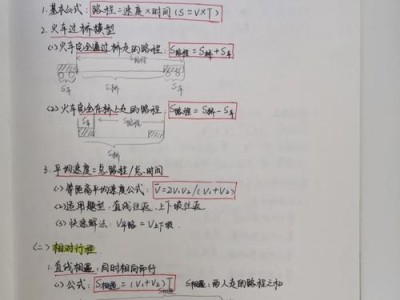 1.基本公式：路程=速度×时间（S=V×T）
2.火车过桥模型
(1)火车完全通过桥走的路程：S路程=S桥+S车
S路程
S车 S桥 S车
(2)火车完全在桥上走的路程：S路程=S桥-S车
S车 S路程
S桥
3.平均速度=总路程/总时间
(1)等距离平均速度公式：V̄=2V₁V₂/(V₁+V₂)
(2)适用模型：直线往返、上下坡往返
(3)快速解法：
(二)相对行程
1.直线相遇：同时相向而行
(1)公式：S相遇=(V₁+V₂)T S相遇：两人走的路程之和
S相遇